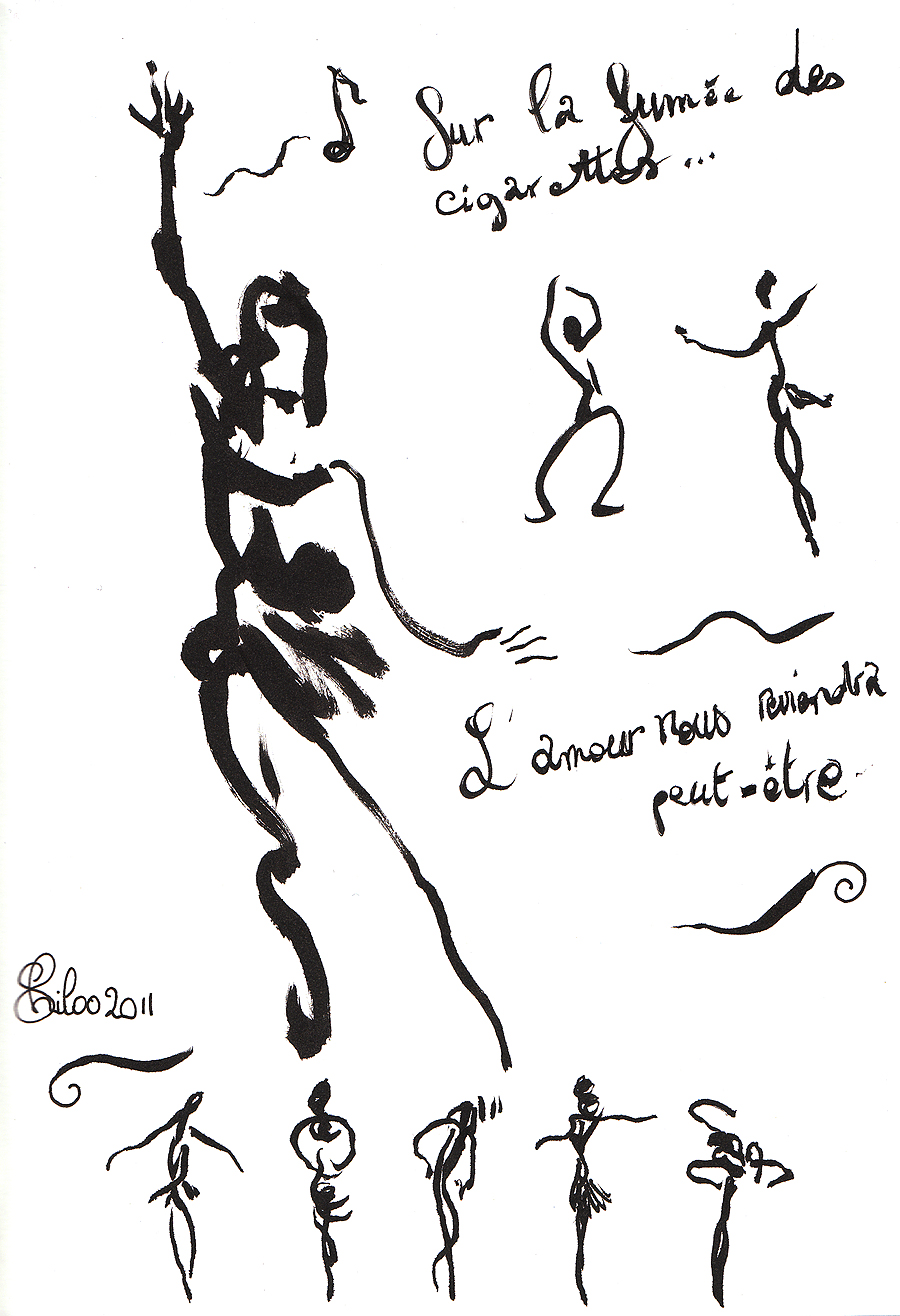 Sur la fumée des
cigarettes...
L'amour nous reviendra
peut-être
2011